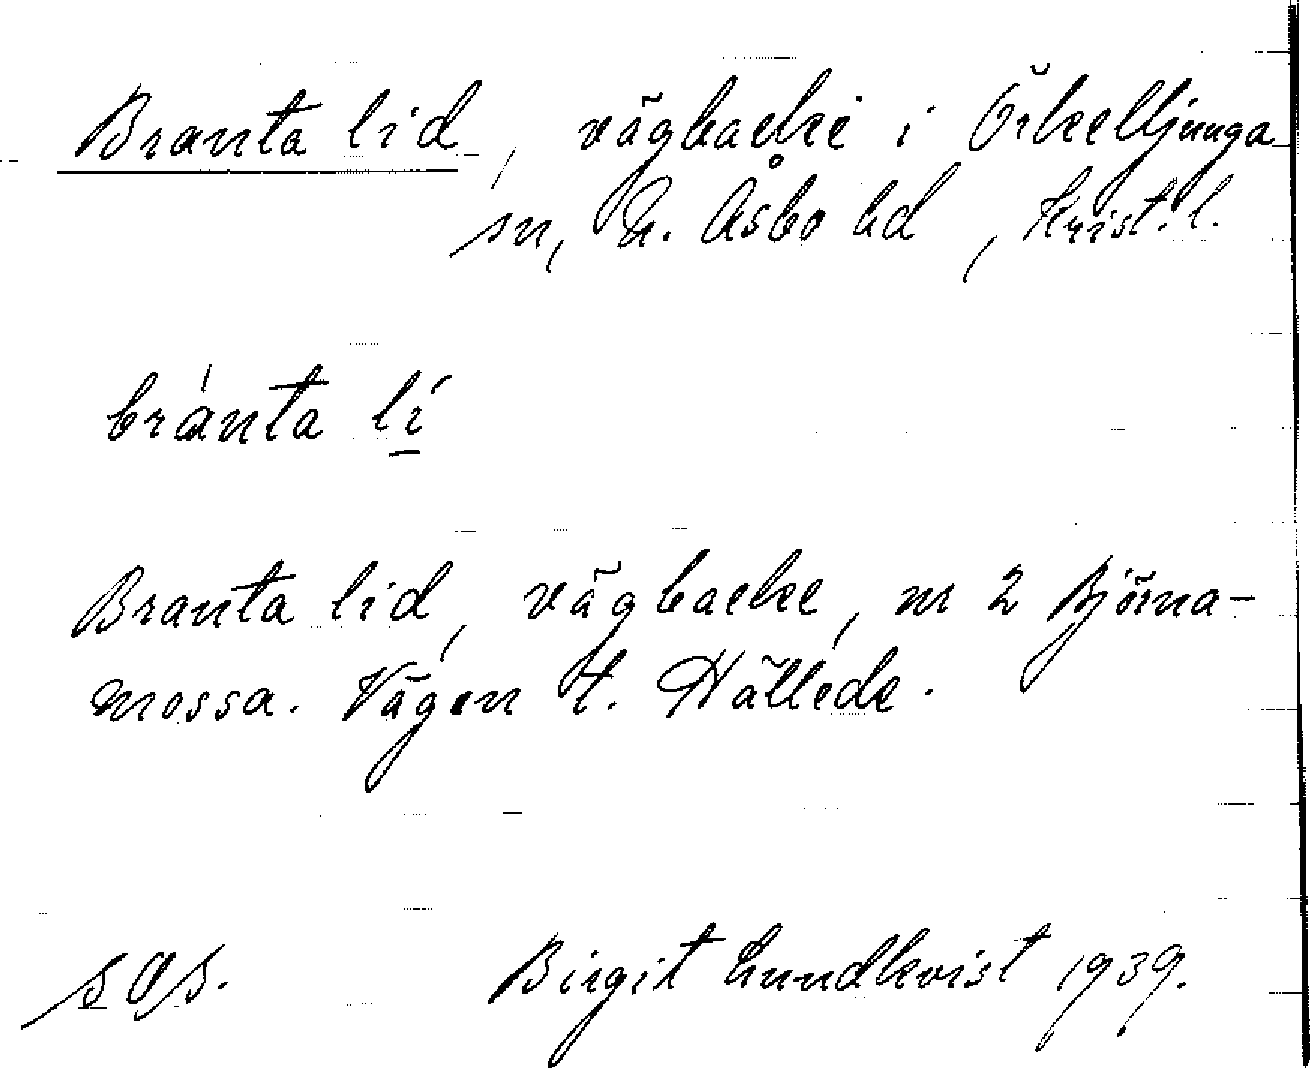 Branta lid, vägbacke i Örkelljunga
sn, N. Åsbo hd, Krist. l.
bránta lí
Branta lid, vägbacke, nr 2 Björna-
mossa. Vägen t. Hälléde.
Birgit Lundkvist 1939.